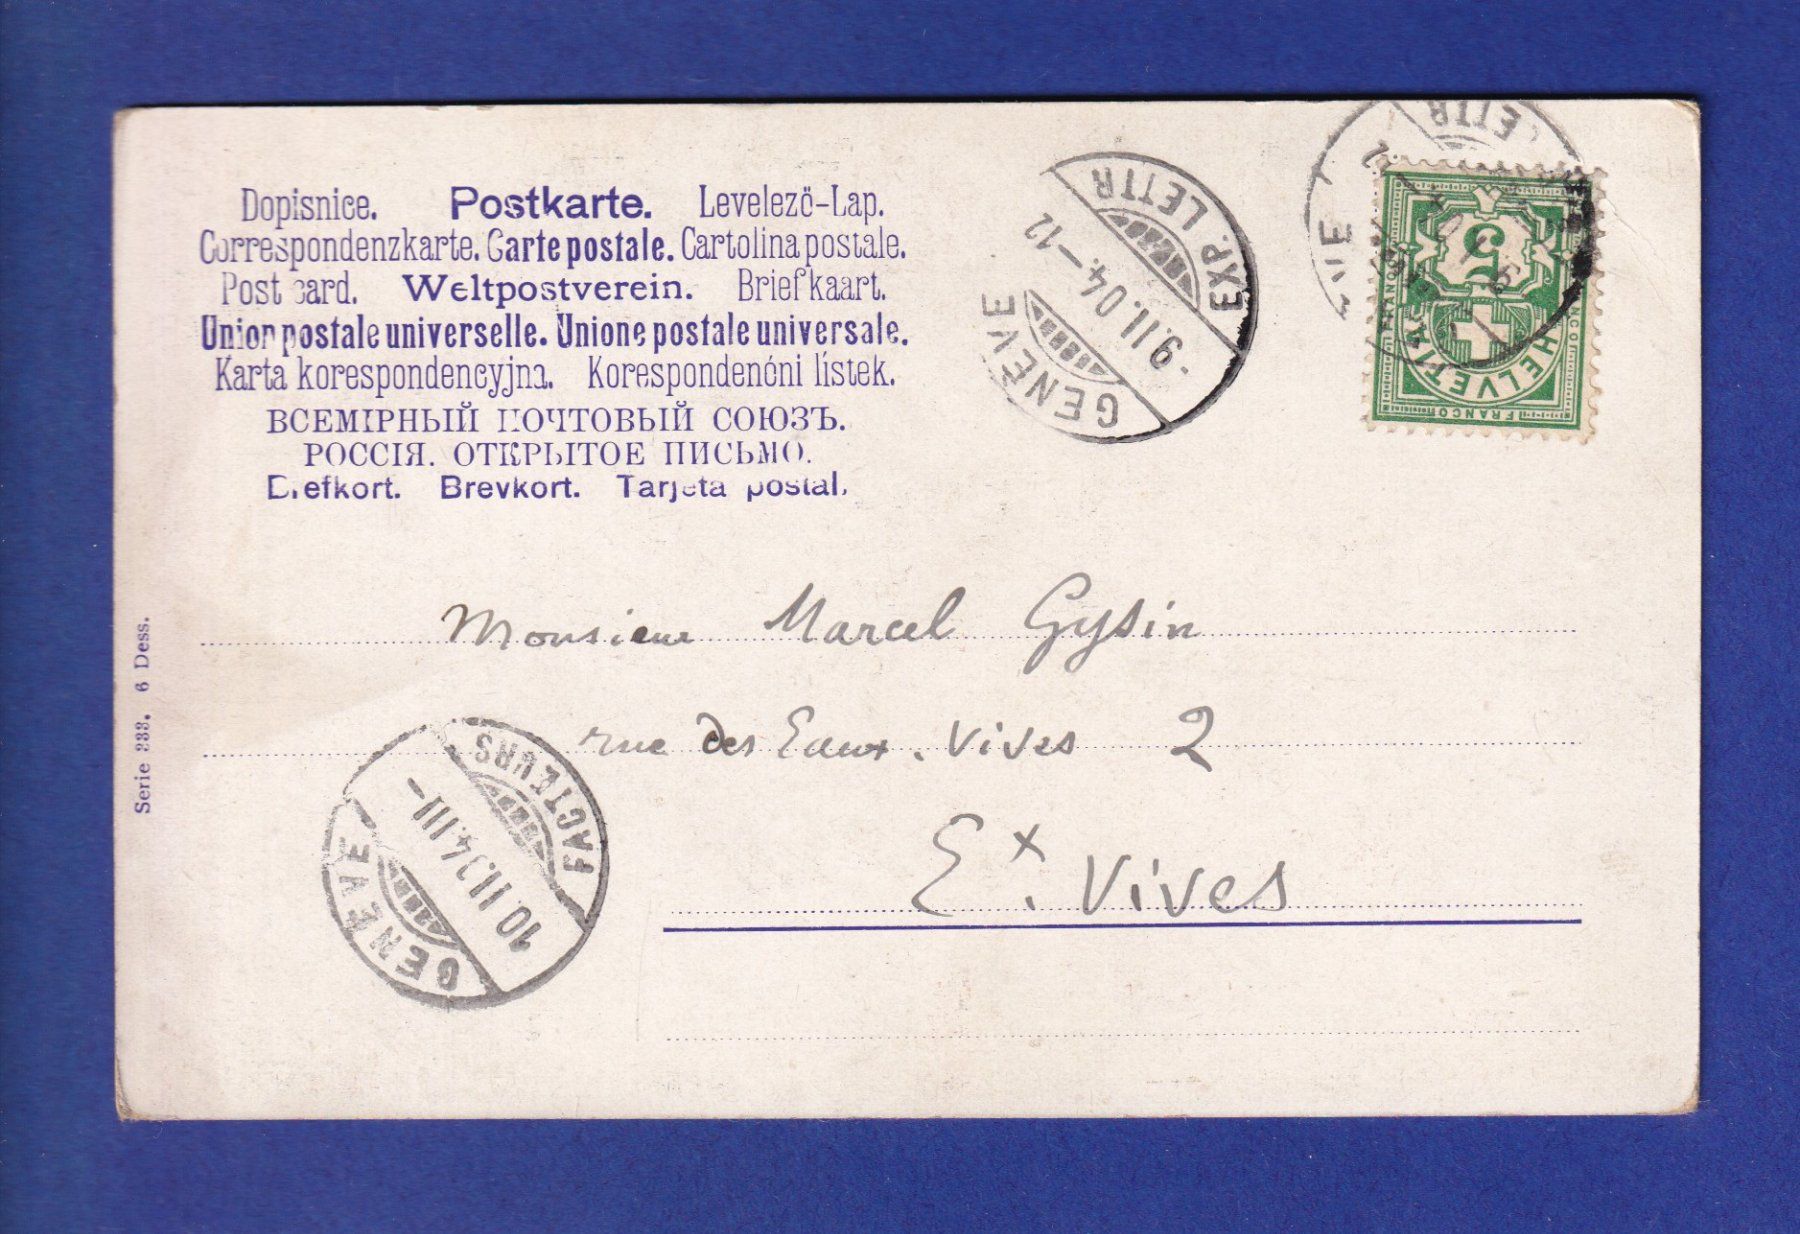 Dopisnice. Postkarte. Levelező-Lap.
Correspondenzkarte. Carte postale. Cartolina postale.
Post card. Weltpostverein. Briefkaart.
Union postale universelle. Unione postale universale.
Karta korespondencyjna. Korespondenćni lístek.
ВСЕМІРНЫЙ ПОЧТОВЫЙ СОЮЗЪ.
РОССІЯ. ОТКРЫТОЕ ПИСЬМО.
Brefkort. Brevkort. Tarjeta postal.
GENÈVE
EXP. LETTR
-9.II.04.-12
LETTR
12
5
FRANCO
HELVETIA
FRANCO
FRANCO
Monsieur Marcel Gysin
rue des Eaux-Vives 2
Ex. Vives
GENÈVE
FACTEURS
10.II.04.III-
Serie 233. 6 Dess.